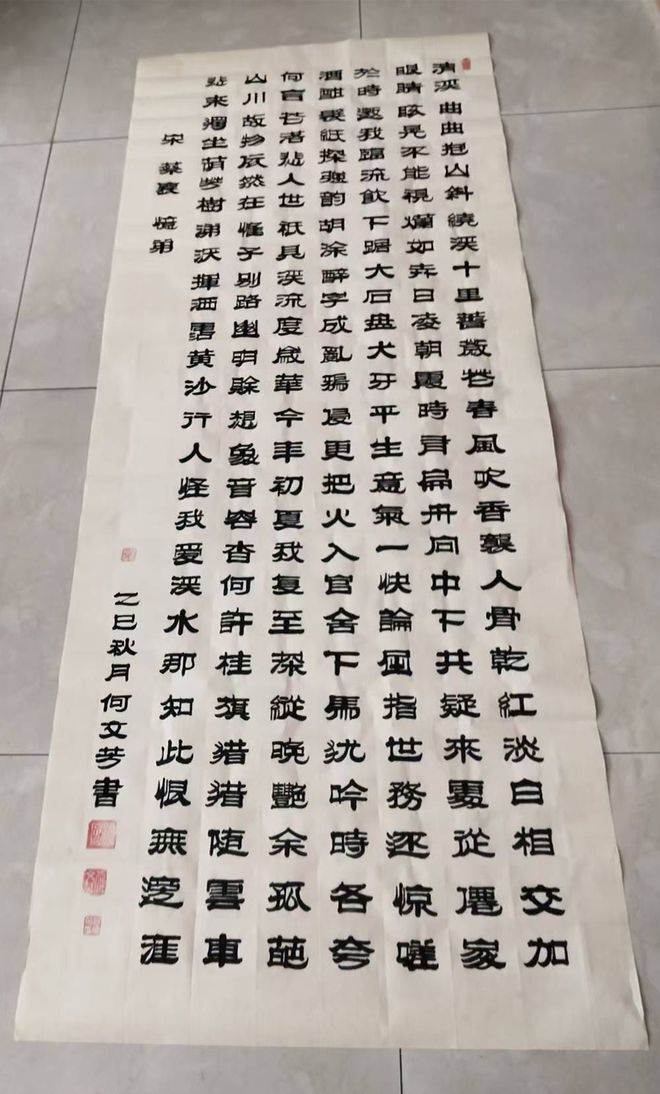 清溪曲曲抱山斜繞溪十里薔薇花春風吹香襲人骨乾紅淡白相交加
眼睛眩晃不能視爛如日凌朝霞時有扁舟向中下共疑來處從僊家
於時邀我臨流飲下踞大石盤犬牙平生意氣一快論屈指世務还惊嗟
酒酣裂紙探強韵胡涂醉字成亂鴉侵更把火入官舍下馬沈吟時各夸
何言人世祇見溪流度歲華今年初夏我复至深縱晚艷余孤葩
山川故物依然在惟子別路幽明賒想象音容杳何許桂旗猎猎随雲車
來獨坐荫芳樹揮洒霑黄沙行人怪我愛溪水那知此恨無邊涯
宋 蔡襄 憶弟
乙巳秋月何文芳書